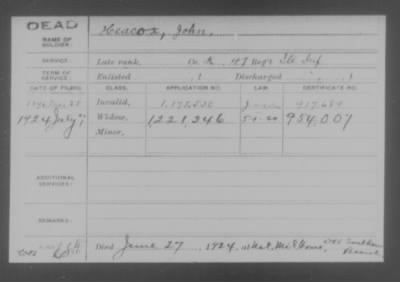 DEAD
NAME OF SOLDIER: Heacox, John.
SERVICE: Late rank, Co. K, 47 Reg't Ill. Inf
TERM OF SERVICE: Enlisted , 1 Discharged , 1
DATE OF FILING. CLASS. APPLICATION NO. LAW CERTIFICATE NO.
Invalid,
1924 July Widow, 1,221,246 5-1-20 954,007
Minor,
ADDITIONAL SERVICES:
REMARKS:
Died June 27, 1924, at Nat. Mil Home,